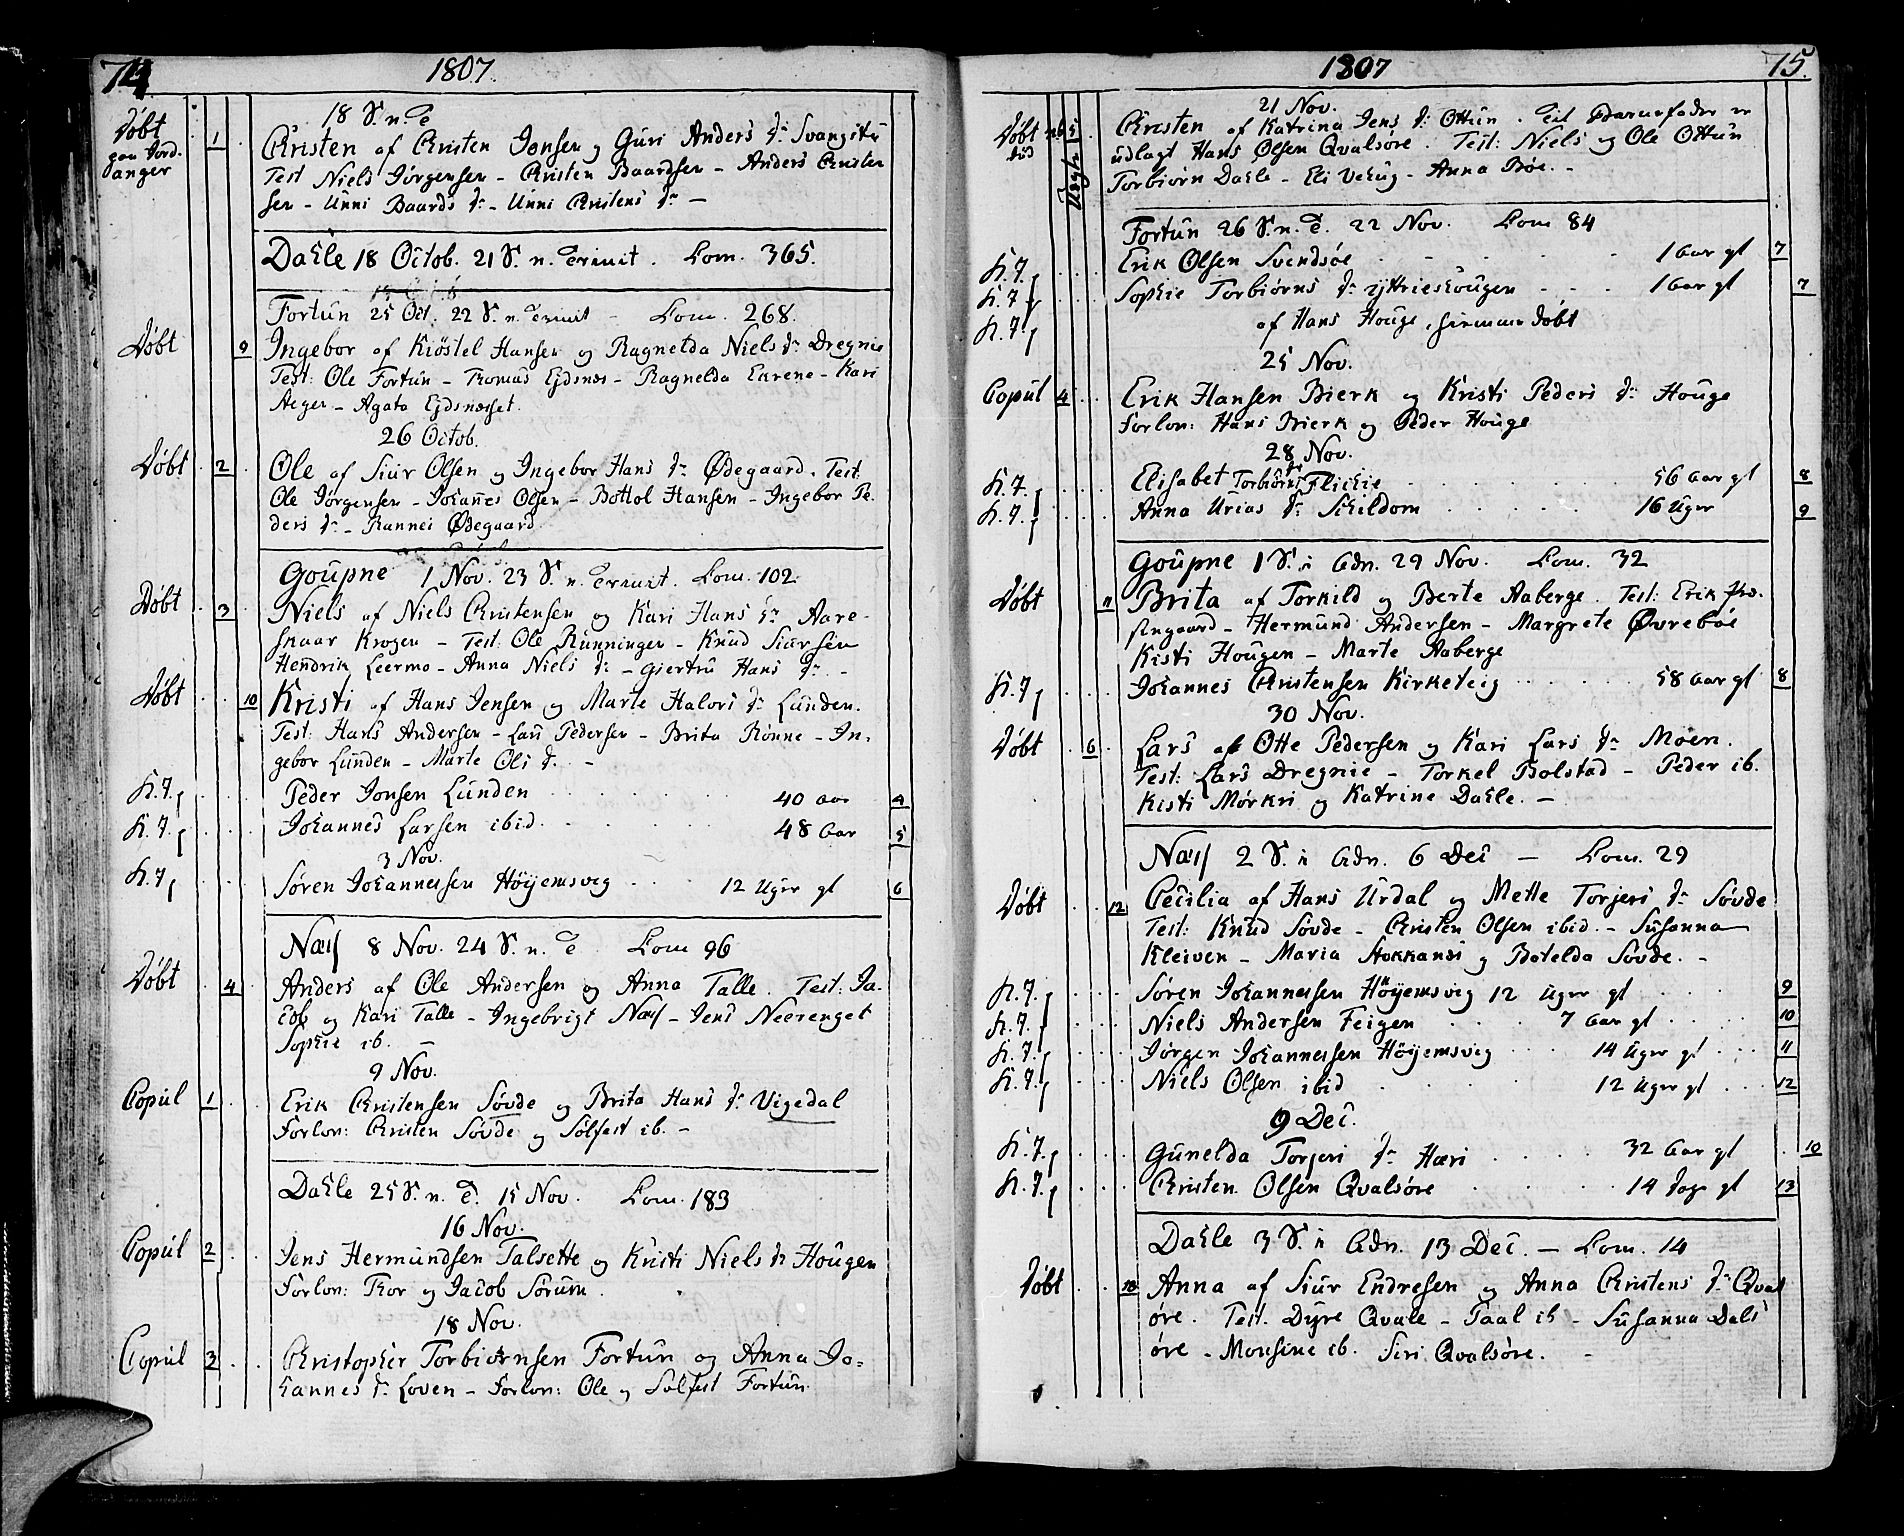 74
1807.
18 S. n. T
Døbt
paa Jord-
anger
1
Christen af Christen Jonsen og Guri Anders Dr Svangitu
Test Niels Jørgensen – Christen Baardsen – Anders Christen
sen – Unni Baards Dr – Unni Christens Dr –
Dahle 18 Octob. 21 S. n. Trinit. Com. 365.
Fortun 25 Oct. 22 S. n. Trinit – Com. 268.
Døbt 9 Ingebor af Kiøstel Hansen og Ragnelda Niels Dr Dregnie
Test: Ole Fortun – Thomas Ejdsnæs – Ragnelda Ekrene – Kari
Aeger – Agata Ejdsnæsset.
26 Octob.
Døbt 2 Ole af Siur Olsen og Ingebor Hans Dr Ødegaard. Test.
Ole Jørgensen – Johannes Olsen – Bottol Hansen – Ingebor Pe-
ders Dr – Rannei Ødegaard
Goupne 1 Nov. 23 S. n. Trinit. Com. 102.
Døbt 3 Niels af Niels Christensen og Kari Hans Dr Aare-
skaar Krogen – Test: Ole Rønninger – Knud Siursen
Hendrik Leermo – Anna Niels Dr – Giertru Hans Dr –
Døbt 10 Kristi af Hans Jensen og Marte Halvors Dr Lunden.
Test: Hans Andersen – Lars Pedersen – Brita Rønne – In-
gebor Lunden – Marte Ols Dr –
K. 7. Peder Jonsen Lunden 40 Aar 4
K. 7. Johannes Larsen ibid. 48 Aar 5
3 Nov.
K. 7. Søren Johannessen Høyemsvig 12 Uger gl 6
Næs 8 Nov. 24 S. n. T Com 96
Døbt 4 Anders af Ole Andersen og Anna Talle. Test: Ja-
cob og Kari Talle – Ingebrigt Næs – Jens Neerenget
Sophie ib. –
9 Nov.
Copul 1 Erik Christensen Søvde og Brita Hans Dr Vigedal
Forlov: Christen Søvde og Sølfest ib. –
Dahle 25 S. n. T. 15 Nov. Com. 183
16 Nov.
Copul 2 Jens Hermundsen Talsette og Kristi Niels Dr Hougen
Forlov: Thor og Jacob Sørum.
18 Nov.
Copul 3 Christopher Torbiørnsen Fortun og Anna Jo-
hannes Dr Loven – Forlov: Ole og Sølfest Fortun.
1807
75.
21 Nov.
Døbt 5 Christen af Katrina Jens Dr Ottun. Til Barnefader er
Uægte
udlagt Hans Olsen Qvalsøre. Test: Niels og Ole Ottun
Torbiørn Dahle – Eli – Anna Bøe. –
Fortun 26 S. n. T. 22 Nov. Com 84
K. 7. Erik Olsen Svendsøe 1 Aar gl 7
K. 7. Sophie Torbiørns Dr Yttrieshougen 1 Aar gl 7
K. 7. af Hans Houge, hiemme døbt
25 Nov.
Copul 4 Erik Hansen Bierk og Kristi Peders Dr Houge
Forlov: Hans Bierk og Peder Houge
28 Nov.
K. 7. Elisabet Torbiørns Dr Flichie 56 Aar gl 8
K. 7. Anna Urias Dr Skildom 16 Uger 9
Goupne 1 S. i Adv. 29 Nov. Com. 32
Døbt 11 Brita af Torkild og Berte Aaberge. Test: Erik Pre-
stegaard – Hermund Andersen – Margrete Øvrebøe
Kisti Hougen – Marte Aaberge
K. 7. Johannes Christensen Kirketeig 58 Aar gl 8
30 Nov.
Døbt 6 Lars af Otte Pedersen og Kari Lars Dr Moen.
Test: Lars Dregnie – Torkel Bolstad – Peder ib.
Kisti Mørkri og Katrine Dahle. –
Næs 2 S. i Adv. 6 Dec – Com. 29
Døbt 12 Cecilia af Hans Urdal og Mette Torjers Dr Søvde
Test: Knud Søvde – Christen Olsen ibid. – Susanna
Kleiven – Maria Stokkanes og Botelda Søvde. –
K. 7. Søren Johannessen Høyemsvig 12 Uger gl 9
K. 7. Niels Andersen Feigen 7 Aar gl 10
K. 7. Jørgen Johannessen Høyemsvig 14 Uger gl 11
K. 7. Niels Olsen ibid 12 Uger gl 12
9 Dec.
K. 7. Gunelda Torjers Dr Hæri 32 Aar gl 10
K. 7. Christen Olsen Qvalsøre 14 Dage gl 13
Dahle 3 S. i Adv. 13 Dec. – Com. 14
Døbt Anna af Siur Endresen og Anna Christens Dr Qval
øre. Test. Dyre Qvale – Paal ib – Susanna Dals
øre – Monsine ib. Siri Qvalsøre. –